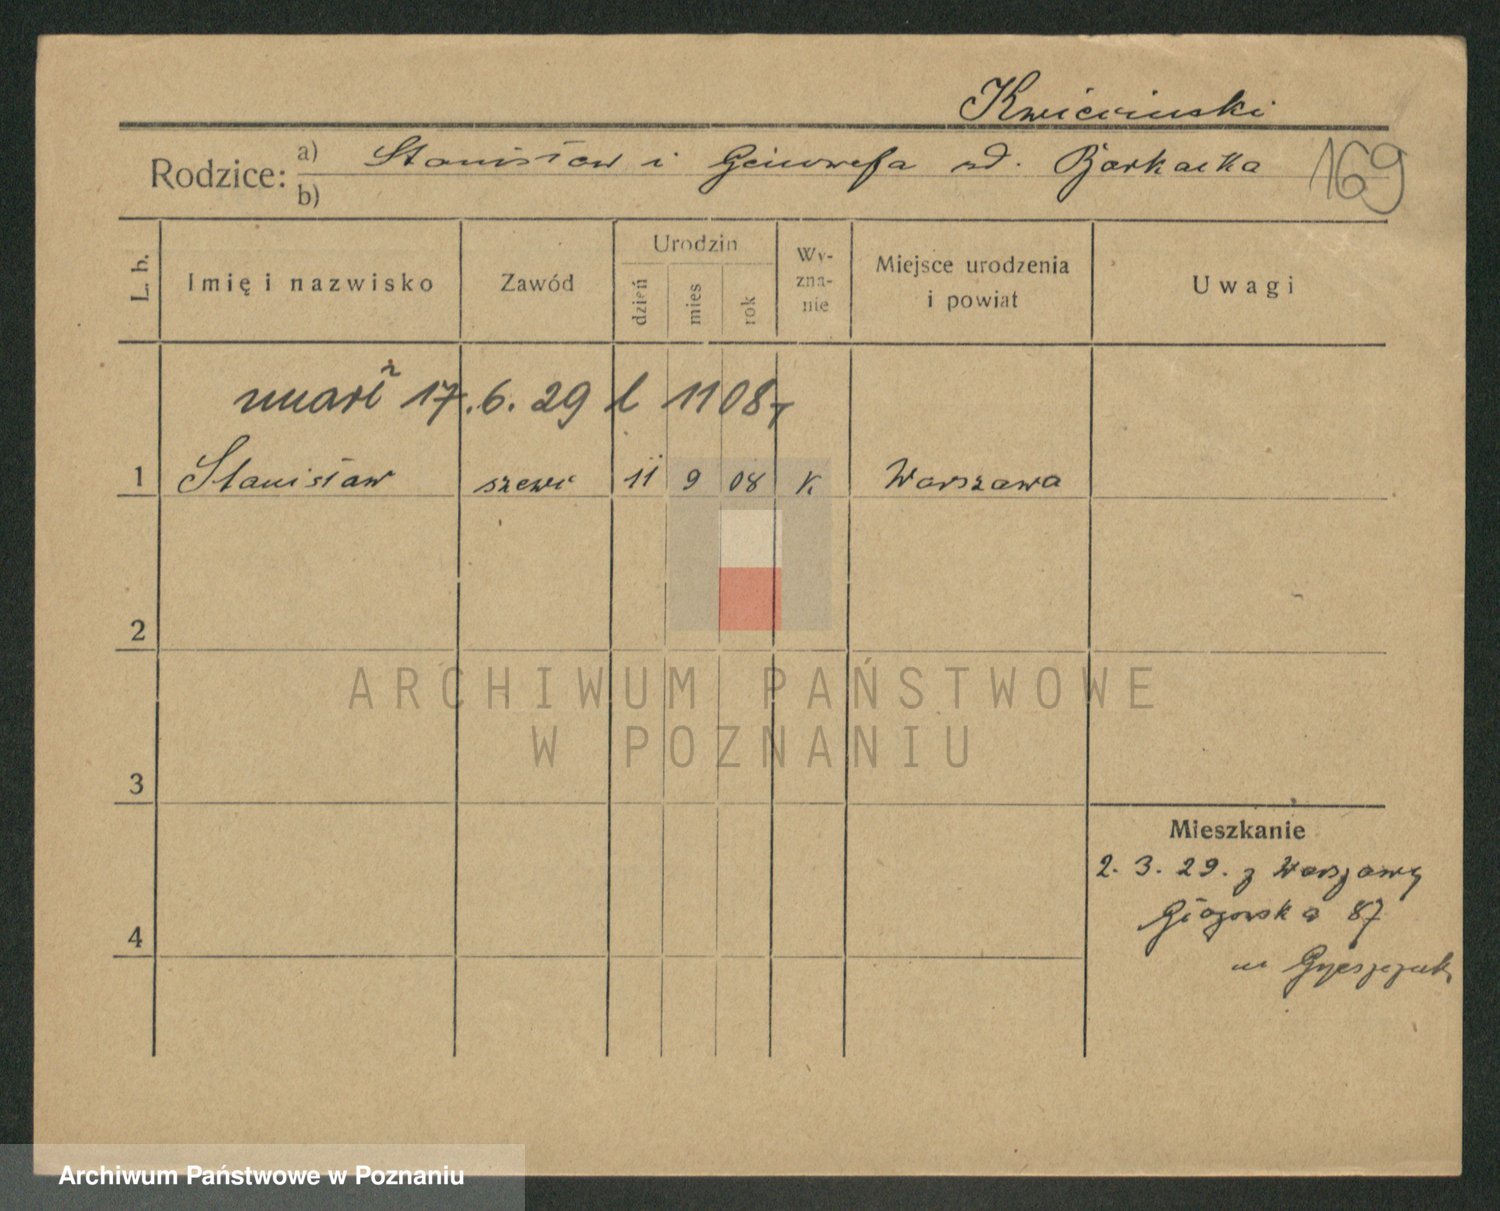 Kwieciński
Rodzice: a) Stanisław i Genowefa zd. Borkacka 169
b)
L. b. Imię i nazwisko Zawód Urodzin dzień mies rok Wy-zna-nie Miejsce urodzenia i powiat Uwagi
umarł 17.6.29 l 1108
1 Stanisław szewc 11 9 08 K Warszawa
2
ARCHIWUM PAŃSTWOWE
W POZNANIU
3
Mieszkanie
2. 3. 29. z Warszawy
87
4
u
Archiwum Państwowe w Poznaniu